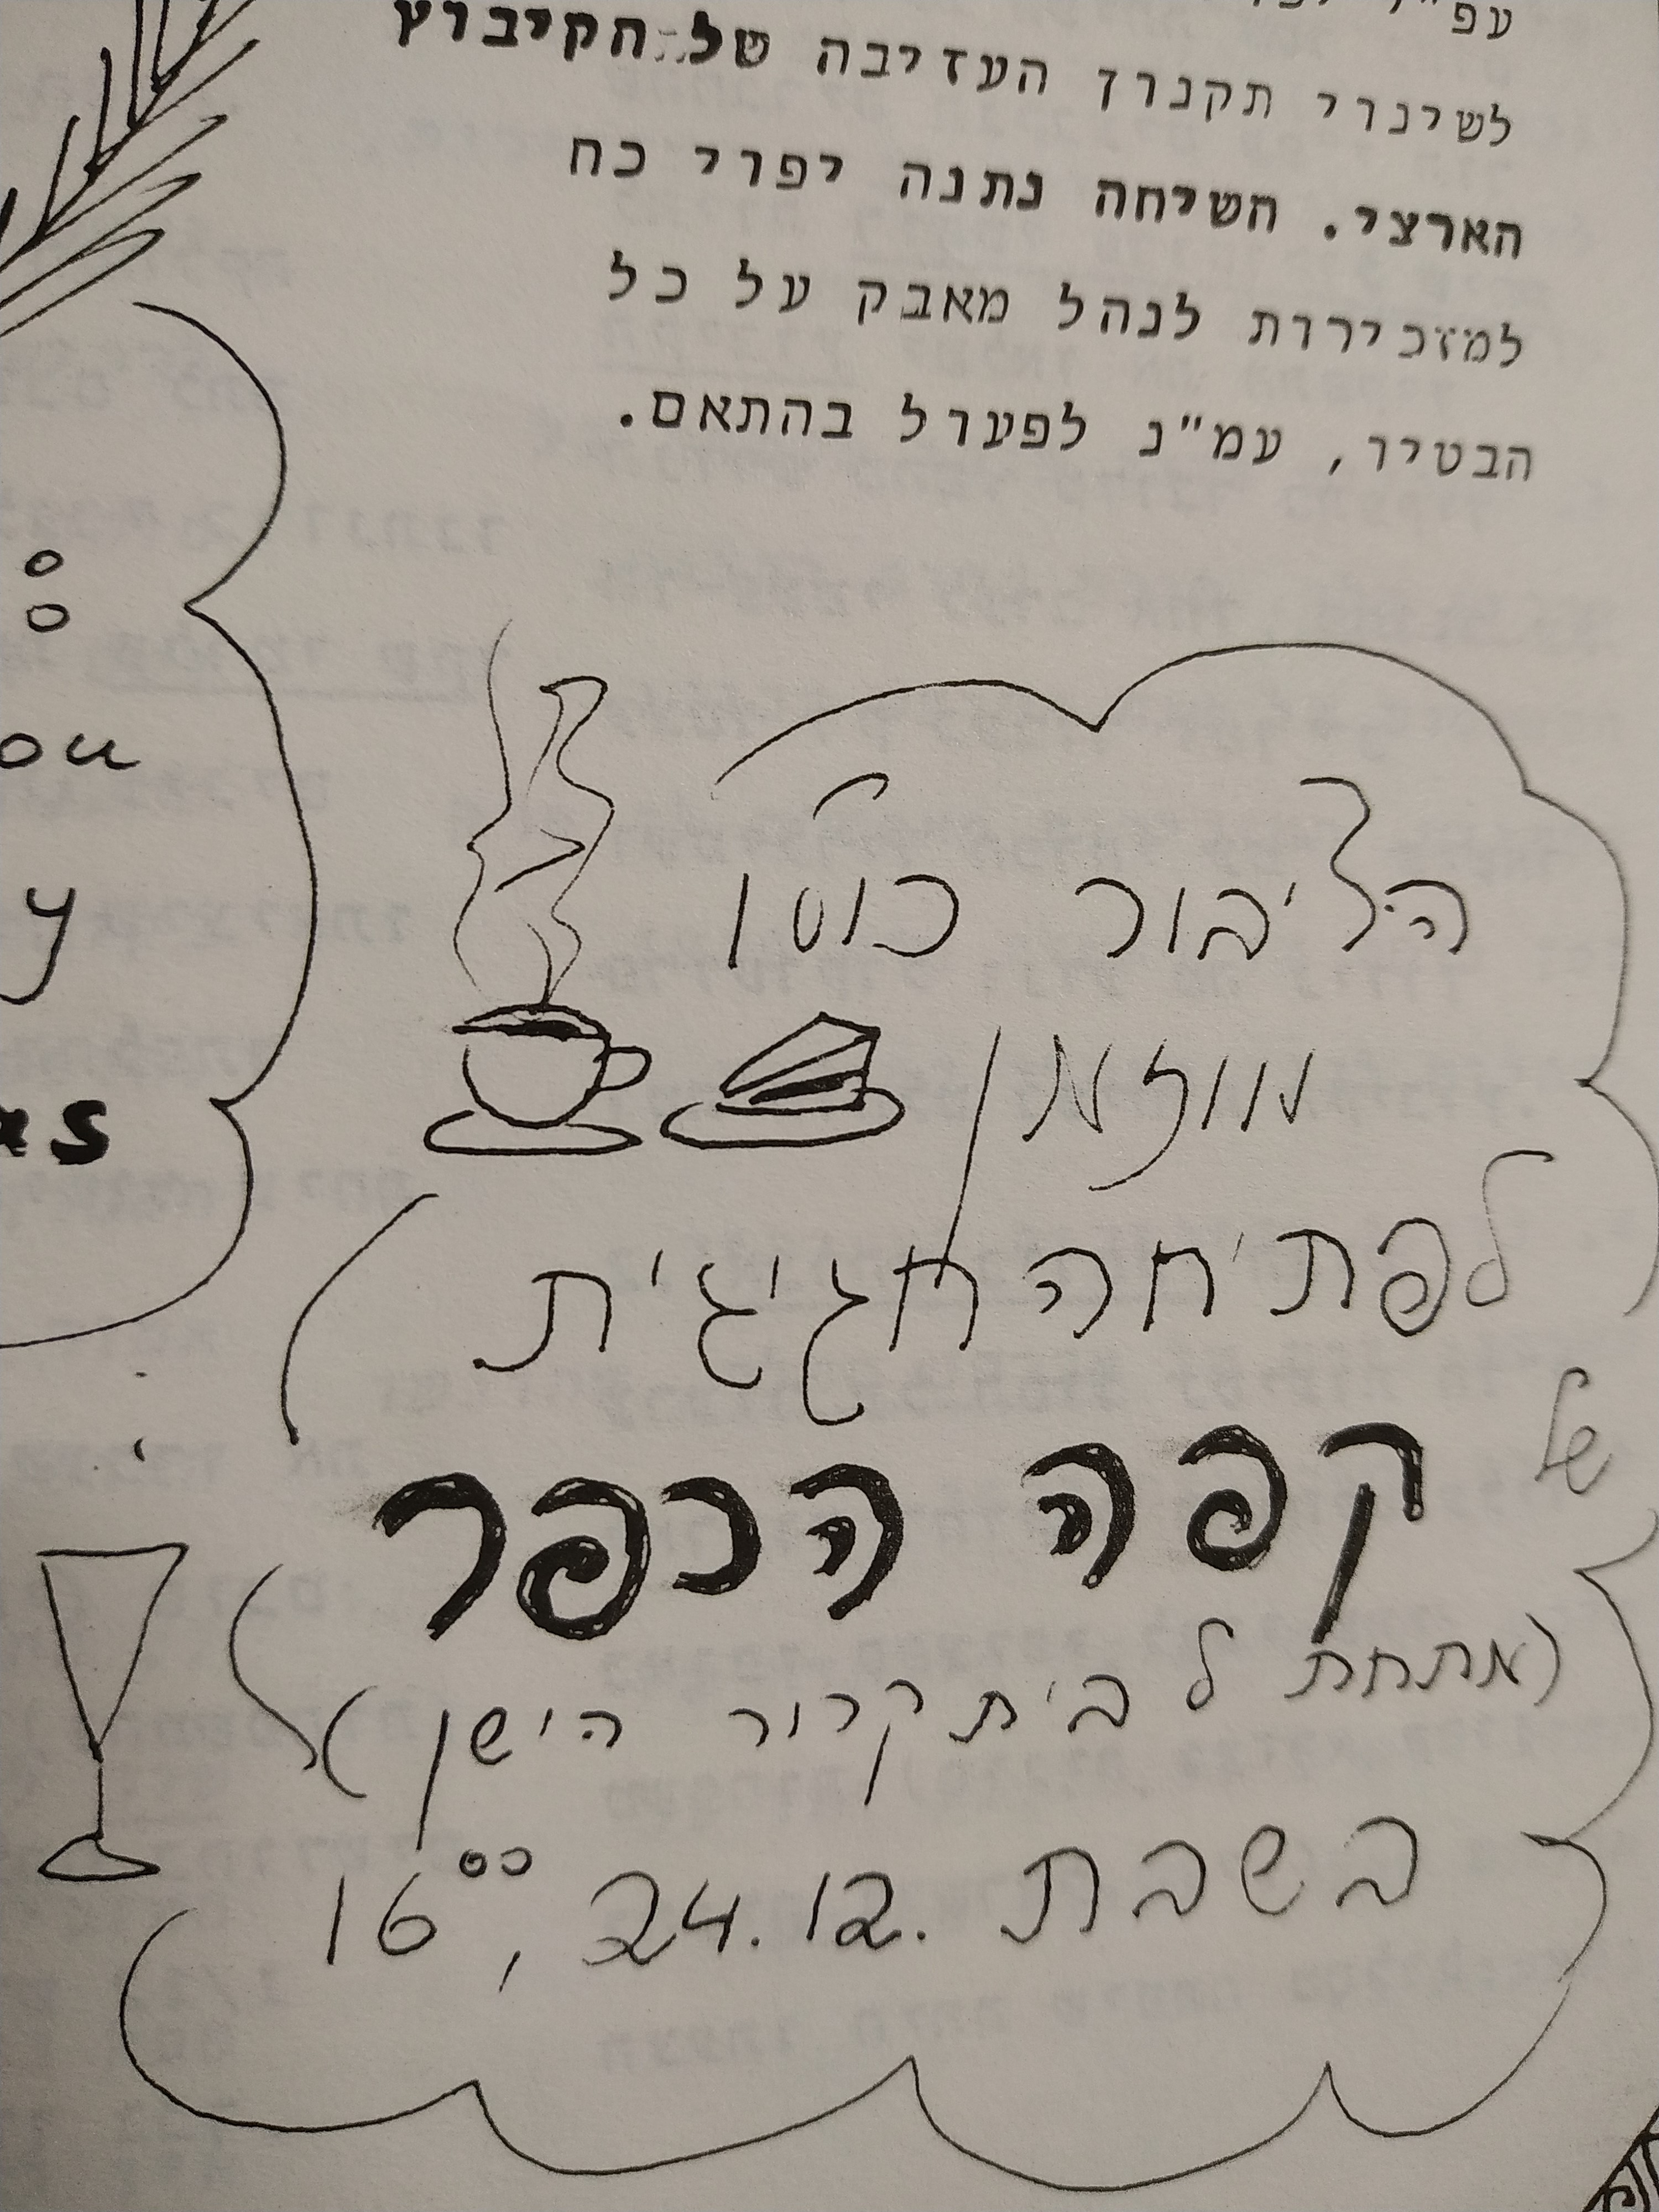 עפ"י
לשינוי תקנון העזיבה של הקיבוץ
הארצי. השיחה נתנה ייפוי כח
למזכירות לנהל מאבק על כל
הבטיו, עמ"נ לפעול בהתאם.
ou
y
as
הציבור כולו
מוזמן
לפתיחה חגיגית
של
קפה הכפר
(מתחת לבית קרור הישן)
בשבת 24.12., 16⁰⁰